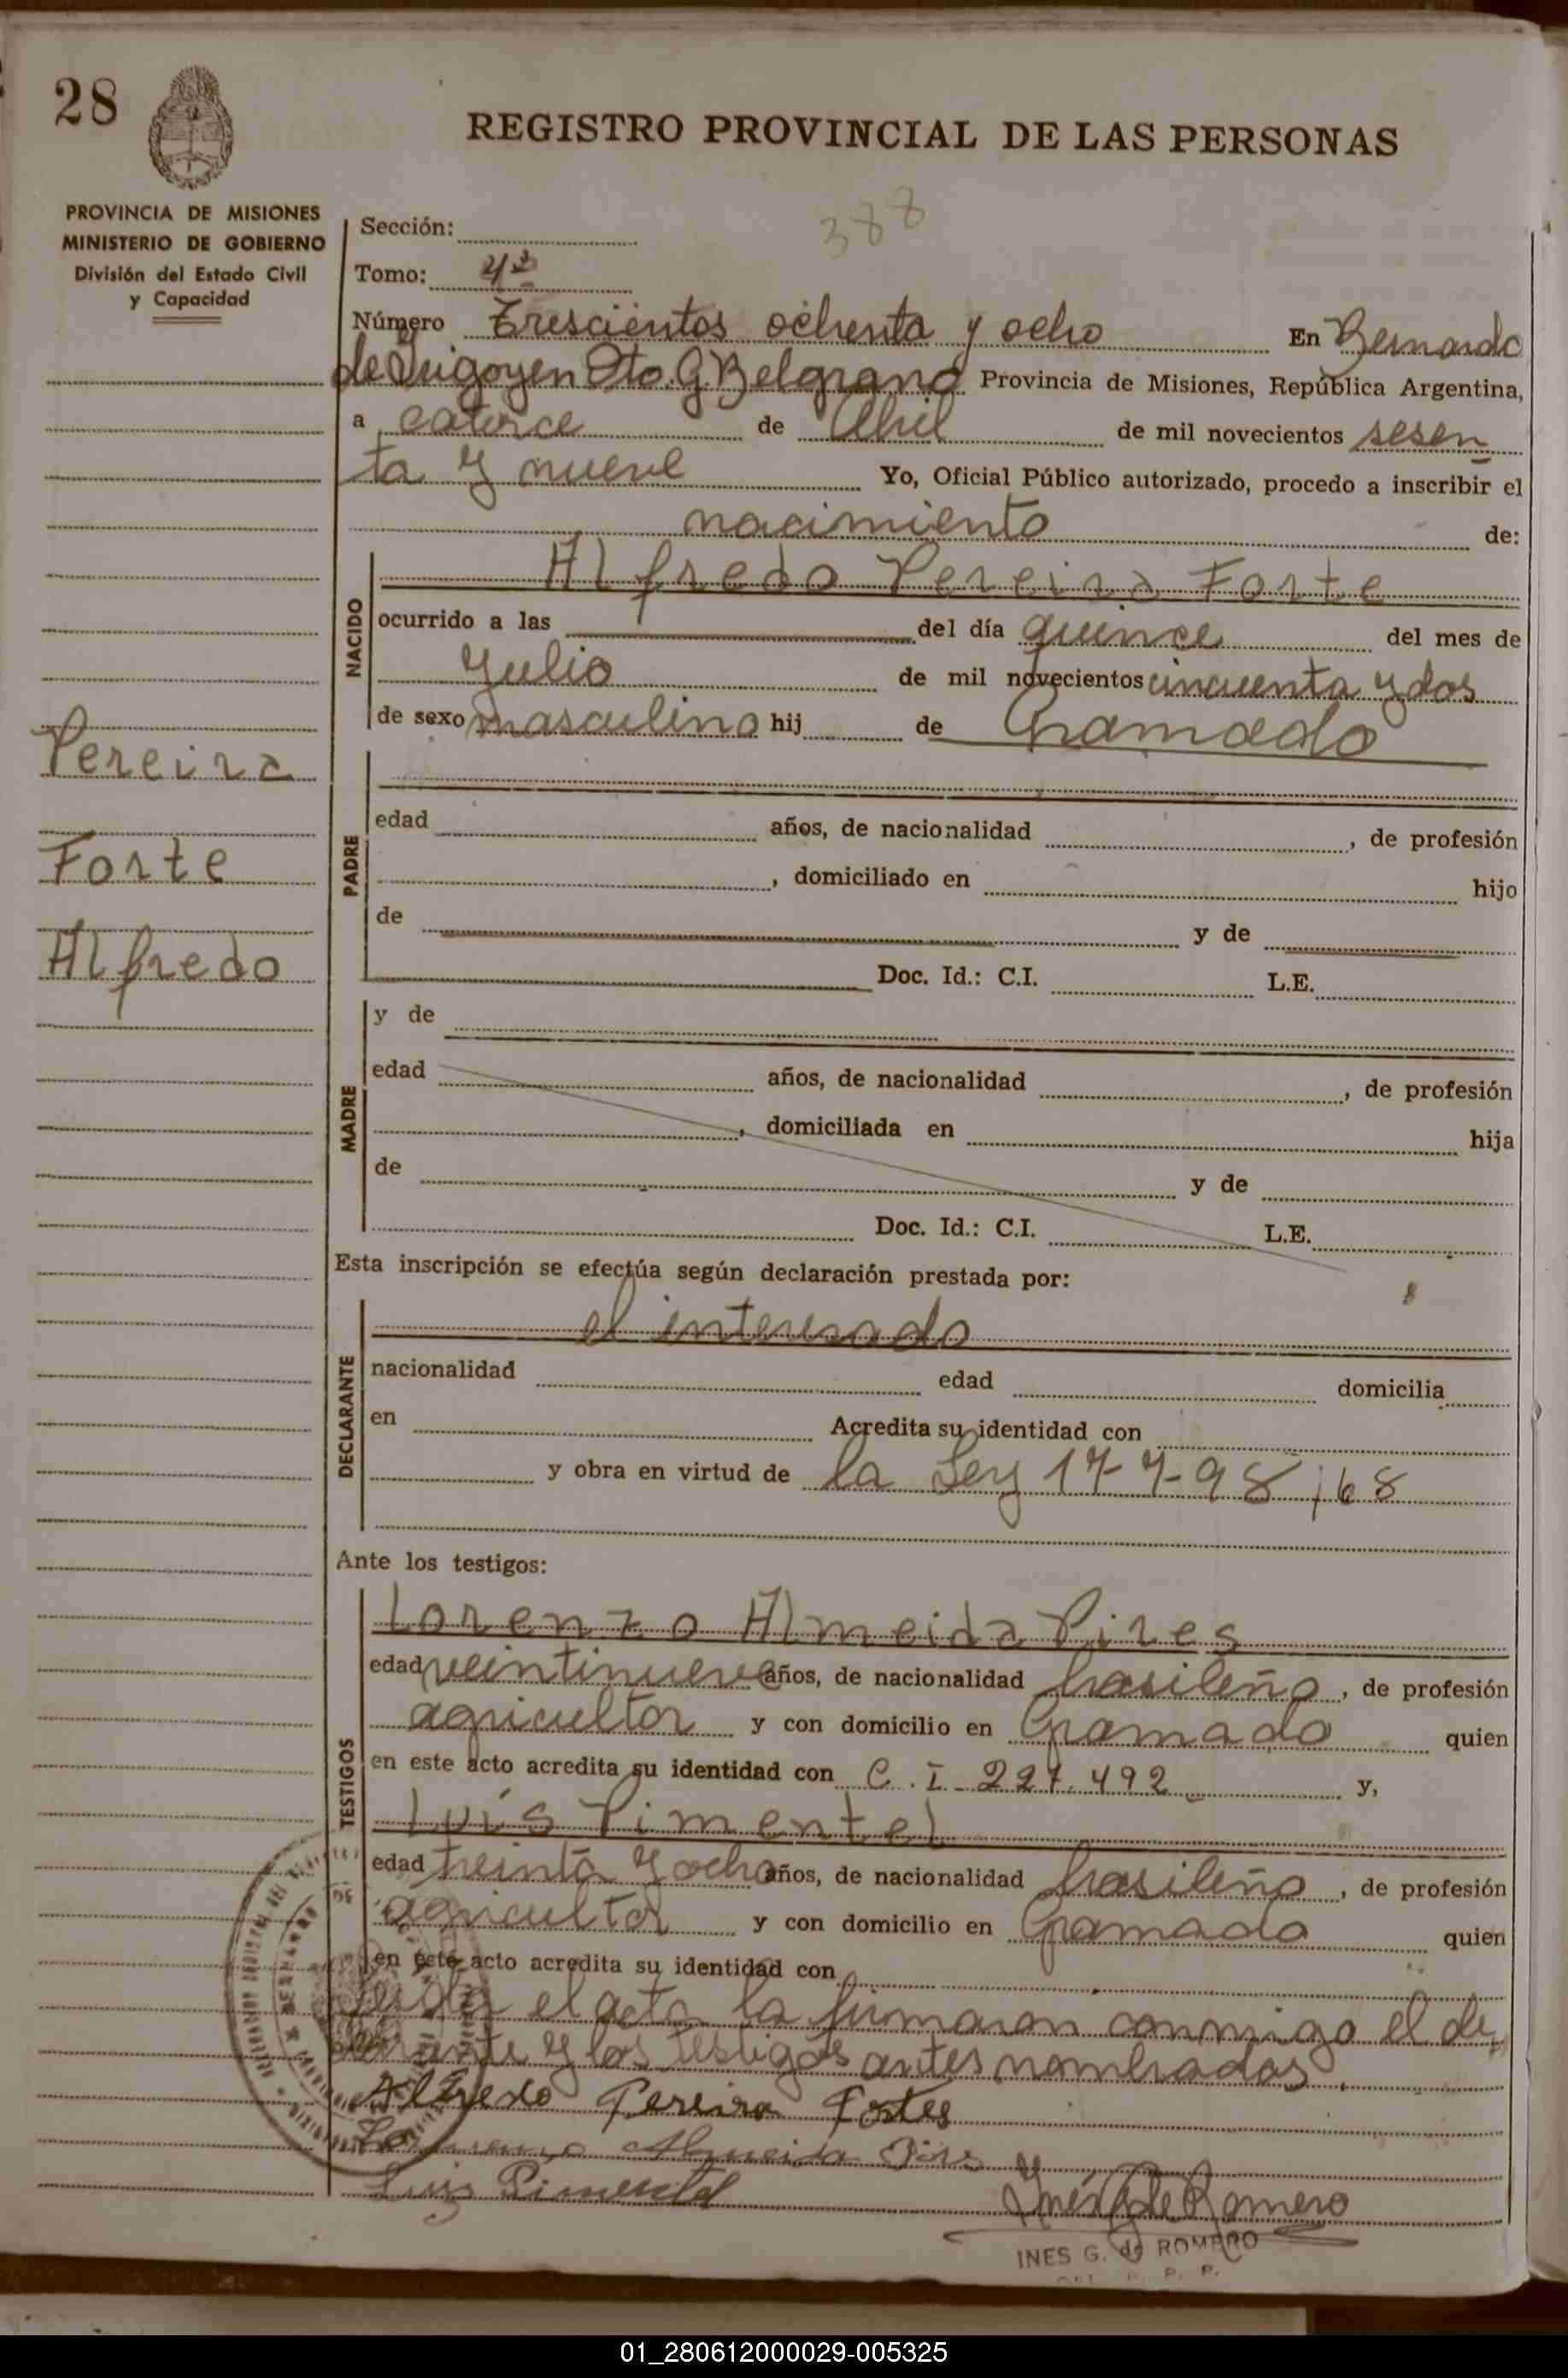 28
REGISTRO PROVINCIAL DE LAS PERSONAS
PROVINCIA DE MISIONES
MINISTERIO DE GOBIERNO
División del Estado Civil
y Capacidad
388
Sección:
Tomo: 4º
Número Trescientos ochenta y ocho En Bernardo
de Irigoyen Dto. G. Belgrano Provincia de Misiones, República Argentina,
a catorce de Abril de mil novecientos sesen
ta y nueve Yo, Oficial Público autorizado, procedo a inscribir el
nacimiento de:
NACIDO
Alfredo Pereira Forte
ocurrido a las del día quince del mes de
Julio de mil novecientos cincuenta y dos
de sexo masculino hij de Gramado
Pereira
Forte
Alfredo
PADRE
edad años, de nacionalidad , de profesión
, domiciliado en hijo
de y de
Doc. Id.: C.I. L.E.
MADRE
y de
edad años, de nacionalidad , de profesión
, domiciliada en hija
de y de
Doc. Id.: C.I. L.E.
Esta inscripción se efectúa según declaración prestada por:
DECLARANTE
el interesado
nacionalidad edad domicilia
en Acredita su identidad con
y obra en virtud de la Ley 17-7-98/68
Ante los testigos:
TESTIGOS
Lorenzo Almeida Pires
edad veintinueve años, de nacionalidad brasileño, de profesión
agricultor y con domicilio en Gramado quien
en este acto acredita su identidad con C.I. 227.492 y,
Luís Pimentel
edad treinta y ocho años, de nacionalidad brasileño, de profesión
agricultor y con domicilio en Gramado quien
en este acto acredita su identidad con
el acta la firmaron conmigo el de
y los testigos antes nombrados.
Alfredo Pereira Fortes
Almeida Pires
Luis Pimentel
Inés G de Romero
INES G. de ROMERO
01_280612000029-005325